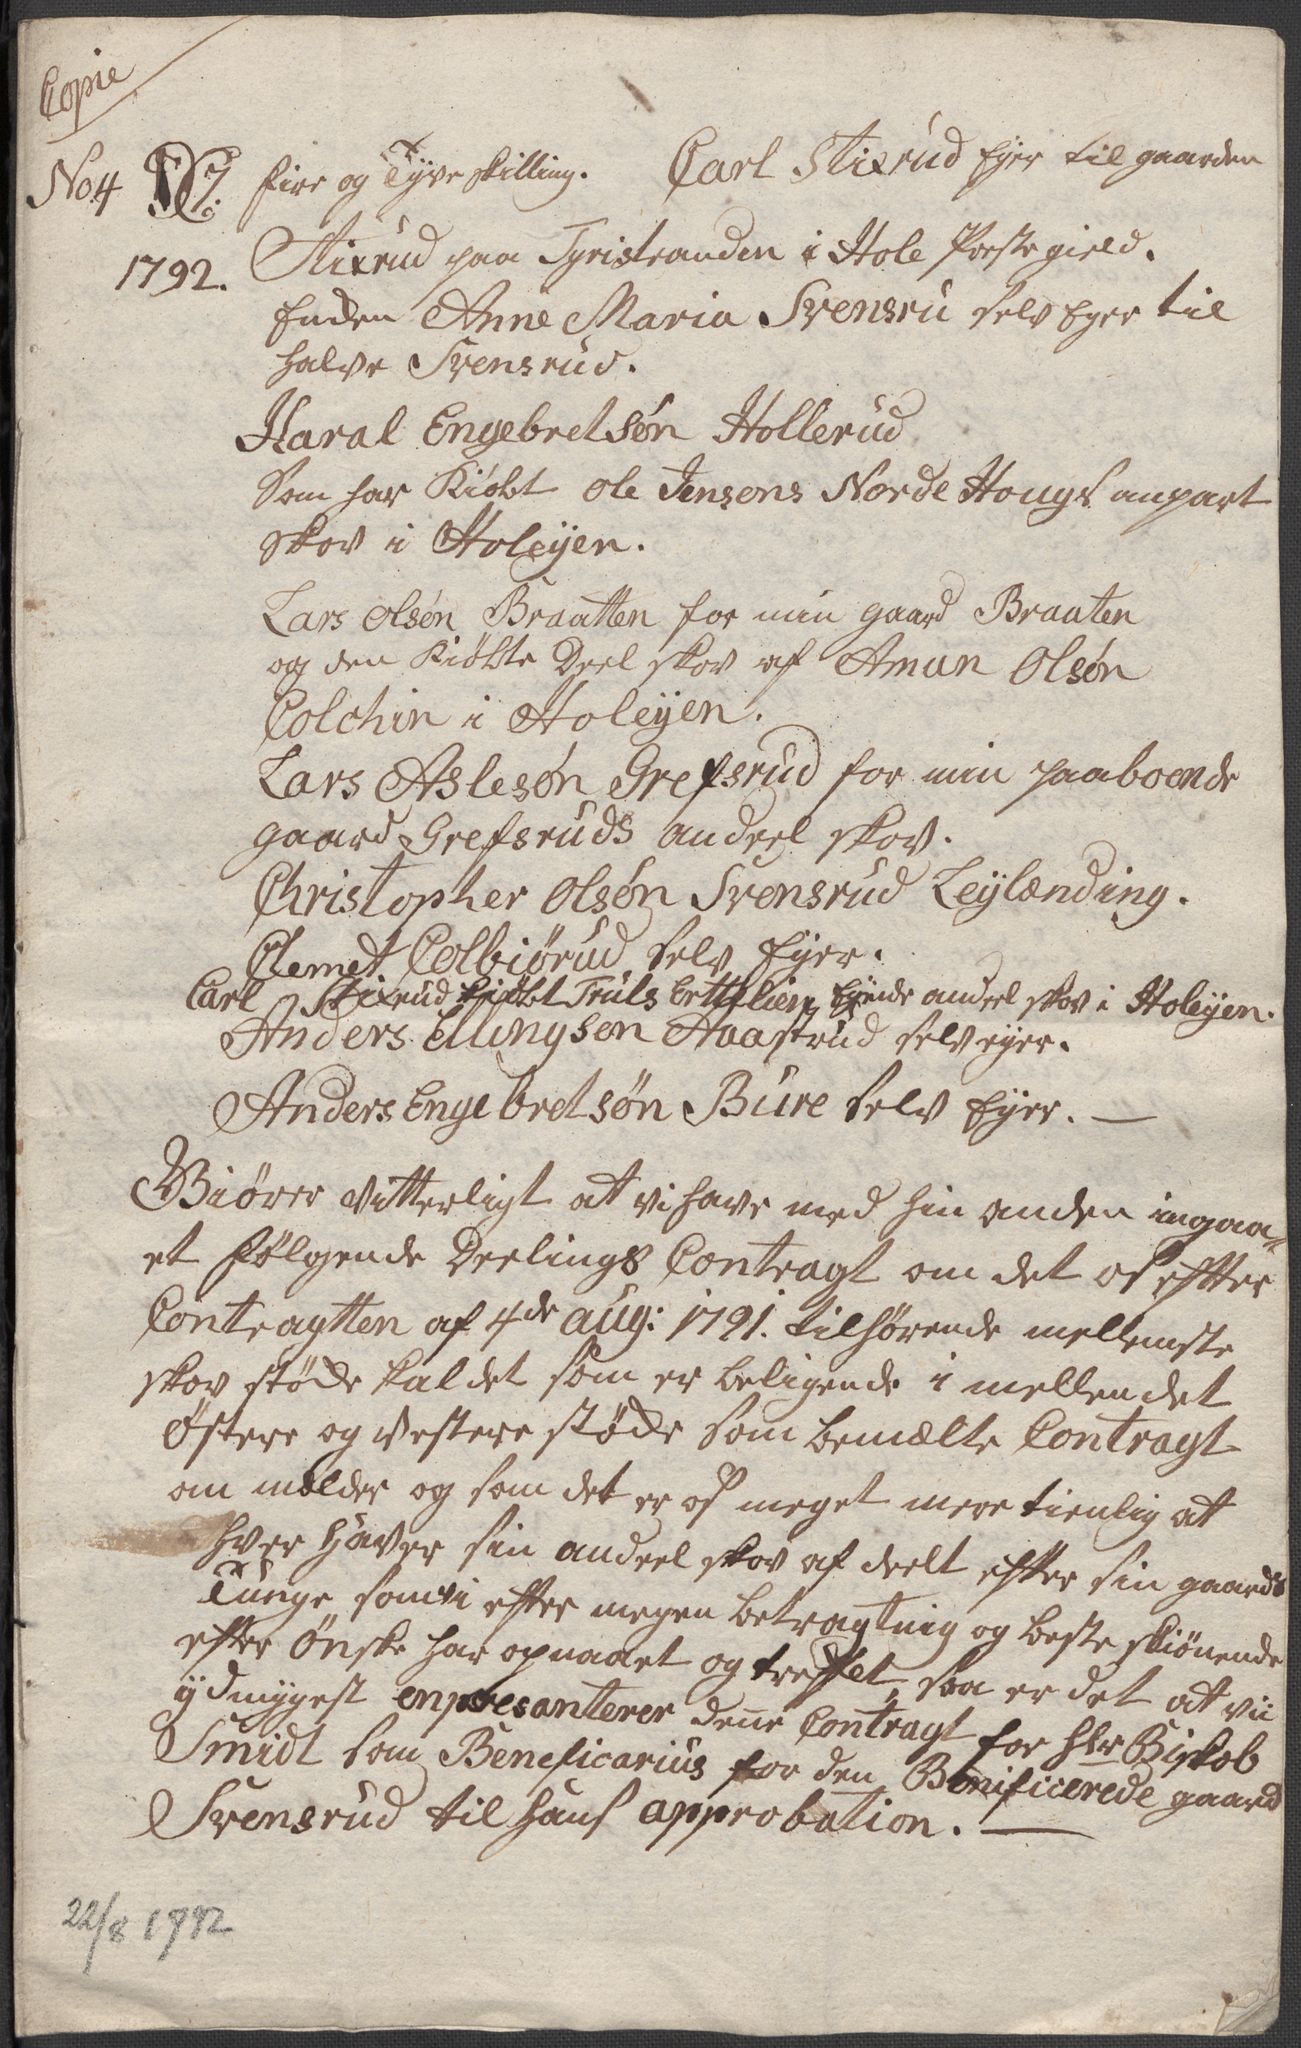 Copie
No 4 C7. fire og Tyve skilling. Carl Stixrud Eyer til gaarden
1792. Stixrud paa Tyristranden i Hole Præstegield.
Enken Anne Maria Svensru selv Eyer til
halve Svensrud.
Haral Engebretsøn Hollerud
Som har Kiøbt Ole Jensens Norde Hougs anpart
skov i Holeÿen.
Lars Olsøn Braatten for min gaard Braaten
og den Kiøbte Deel skov af Amun Olsøn
Colchin i Holeÿen.
Lars Aslesøn Grefsrud for min paaboende
gaard Grefsruds andeel skov.
Christopher Olsøn Svensrud Leylænding.
Clemet Colbiørud selv Eyer.
Carl Stixrud kiøbt Truls eyende andeel skov i Holeÿen.
Anders Ellingsøn Aastrud selv eyer.
Anders Engebretsøn Bure selv Eyer. —
Giører vitterligt at vi have med hin anden ingaa-
et følgende Deelings Contragt om det os efter
Contragtten af 4de aug: 1791. tilhørende mellemste
skov støde kaldet som er beligende i mellem det
Østere og Vestere støde som bemælte Contragt
om mælder og som det er os meget mere tienlig at
hver haver sin andeel skov af deelt efter sin gaards
Tunge som vi efter megen betragtnig og beste skiønende
efter Ønske har opnaaet og treffet, saa er det at vii
ÿdmygest enpresanterer denne Contragt for Hr Biskob
Smidt som Beneficarius for den Benificerede gaard
Svensrud til hans approbation. —
22/8 1792